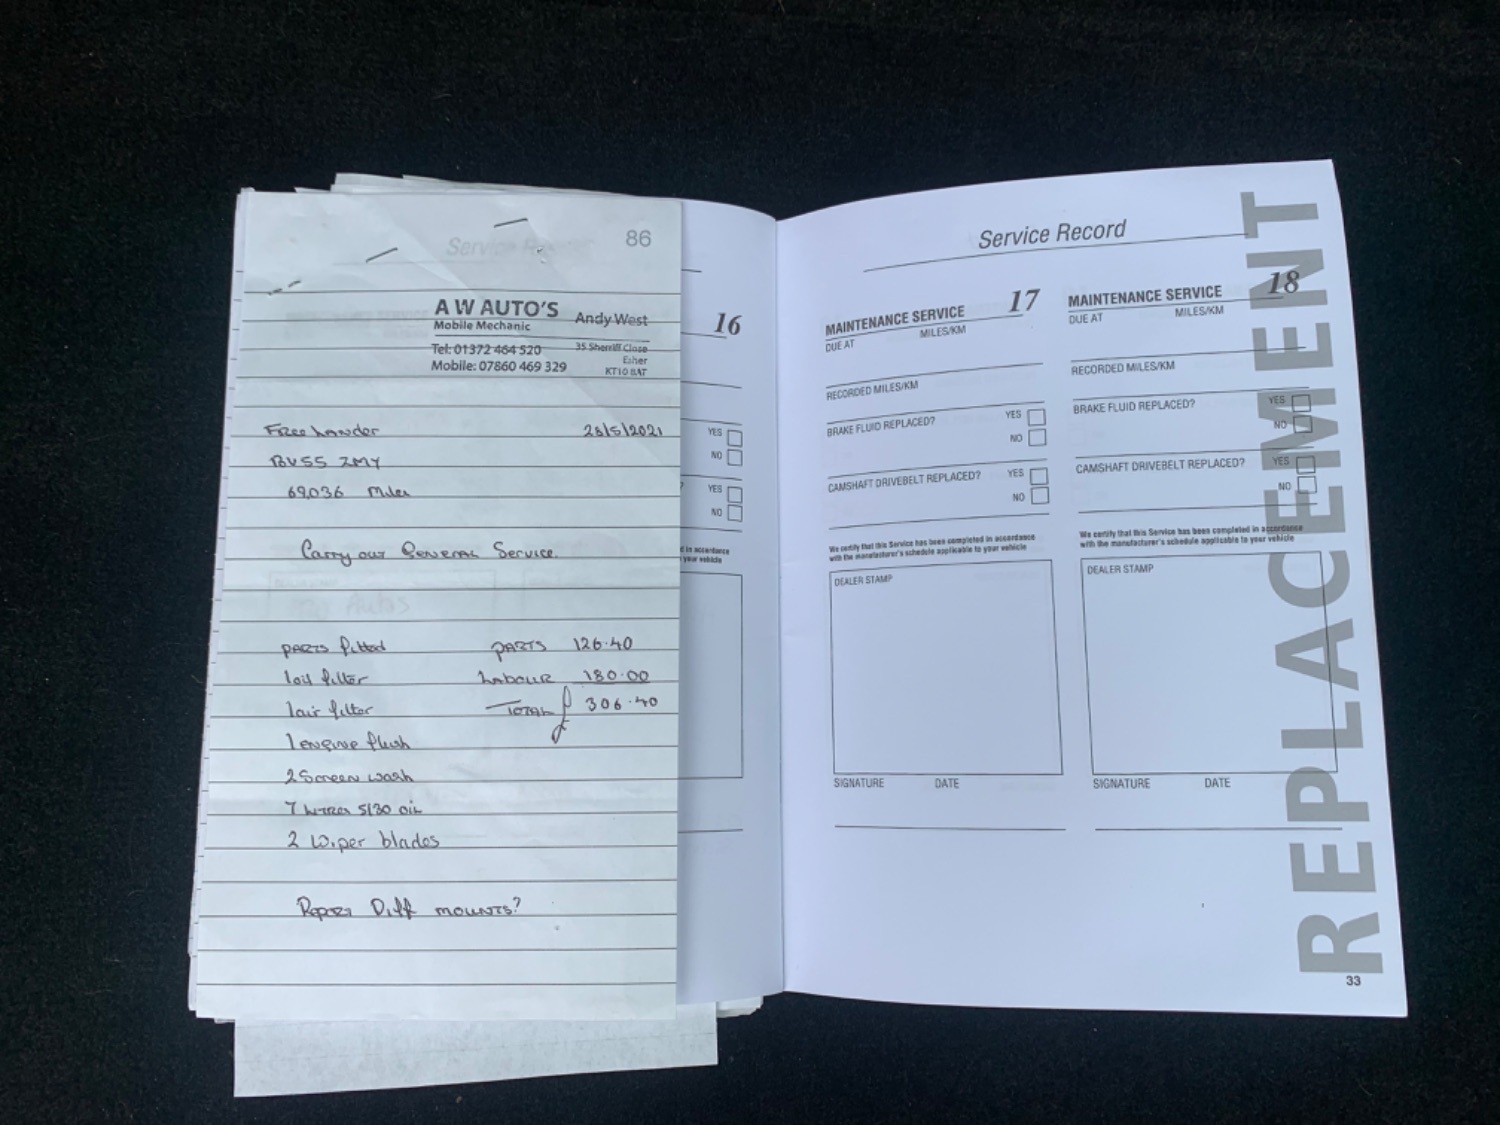 86
Service Rec
A W AUTO'S
Mobile Mechanic
Andy West
Tel: 01372 464 520
Mobile: 07860 469 329
35 Sherriff Close
Esher
KT10 8AT
Freelander 28/5/2021
BV55 ZMY
69036 Miles
Carry out General Service.
Autos
PARTS fitted PARTS 126.40
1 oil filter LABOUR 180.00
1 air filter TOTAL £ 306.40
1 engine flush
2 Screen wash
7 Litres 5/30 oil
2 Wiper blades
Report Diff mounts?
16
YES
NO
YES
NO
in accordance
your vehicle
Service Record
MAINTENANCE SERVICE 17
DUE AT MILES/KM
RECORDED MILES/KM
BRAKE FLUID REPLACED? YES
NO
CAMSHAFT DRIVEBELT REPLACED? YES
NO
We certify that this Service has been completed in accordance
with the manufacturer's schedule applicable to your vehicle
DEALER STAMP
SIGNATURE DATE
MAINTENANCE SERVICE 18
DUE AT MILES/KM
RECORDED MILES/KM
BRAKE FLUID REPLACED? YES
NO
CAMSHAFT DRIVEBELT REPLACED? YES
NO
We certify that this Service has been completed in accordance
with the manufacturer's schedule applicable to your vehicle
DEALER STAMP
SIGNATURE DATE
REPLACEMENT
33